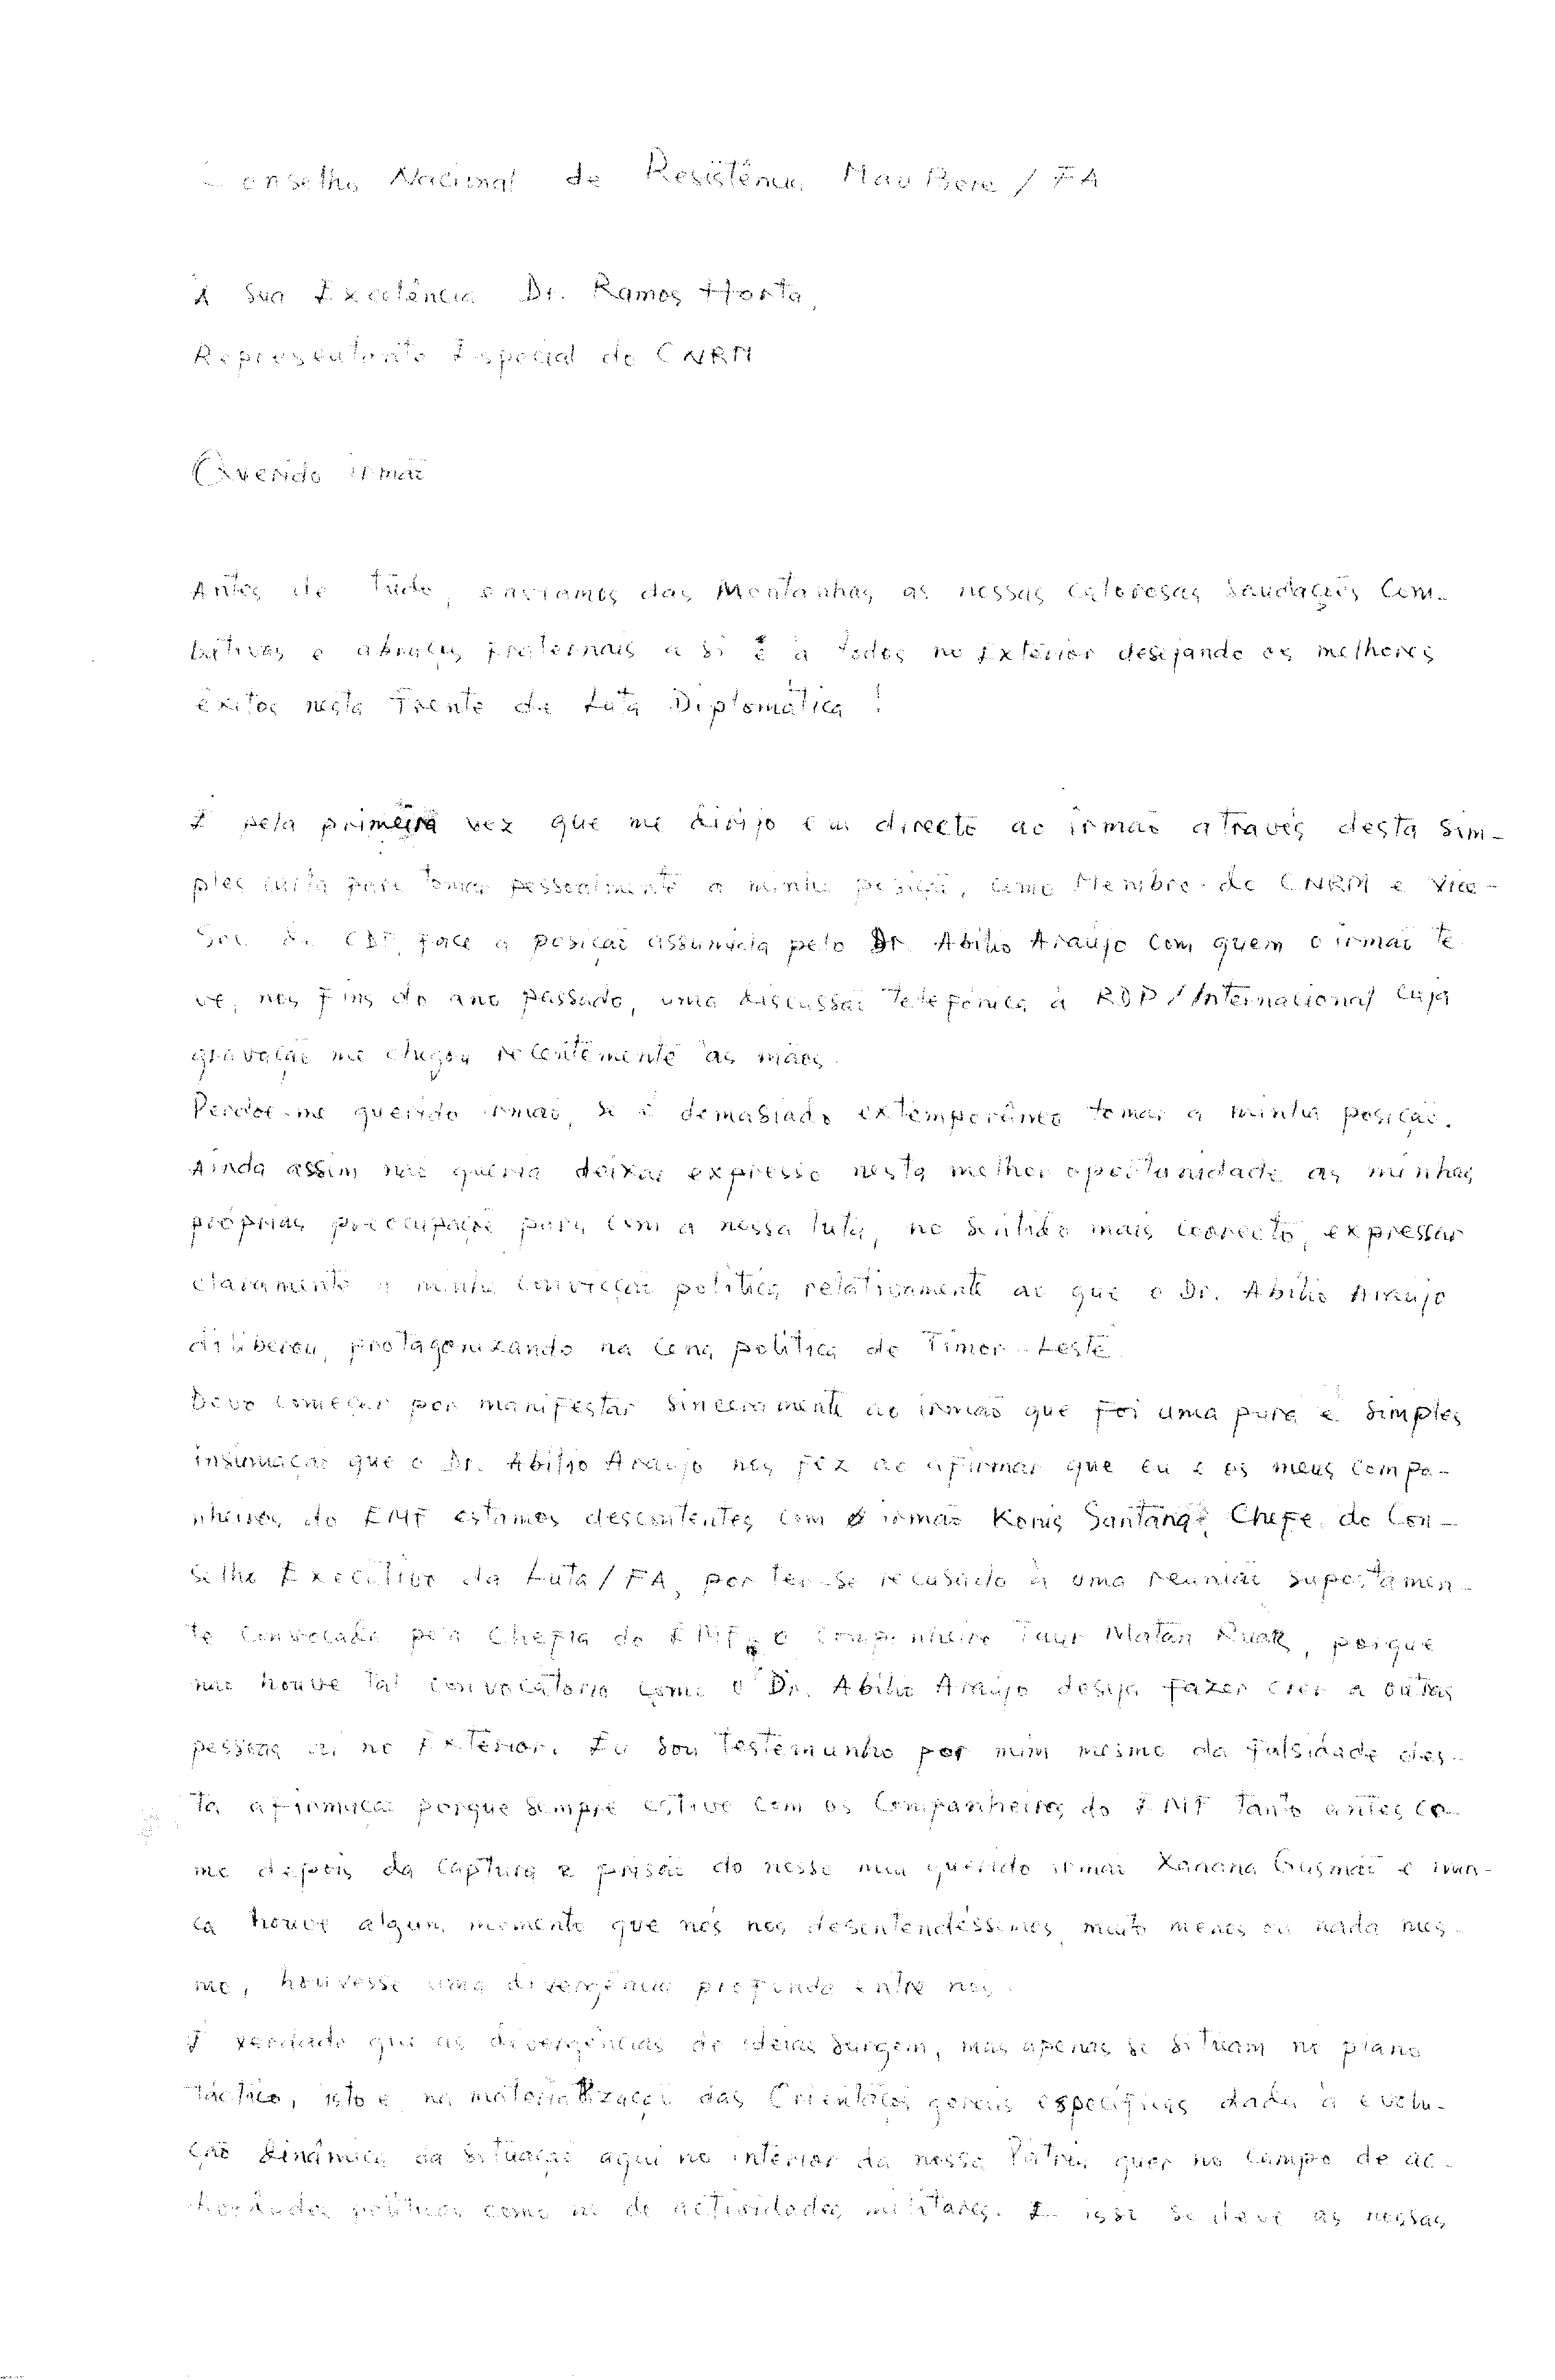 Conselho Nacional de Resistência MauBere / FA
À Sua Excelência Dr. Ramos Horta,
Representante Especial do CNRM
Querido irmão
Antes de tudo, enviamos das Montanhas as nossas calorosas Saudações Com-
bativas e abraços fraternais a si e a todos no Exterior desejando os melhores
êxitos nesta Frente da Luta Diplomática !
É pela primeira vez que me dirijo em directo ao irmão através desta sim-
ples carta para tomar pessoalmente a minha posição, como Membro do CNRM e Vice-
Sec. da CDF, face a posição assumida pelo Dr. Abílio Araújo com quem o irmão te-
ve, nos fins do ano passado, uma discussão telefónica à RDP / Internacional cuja
gravação me chegou recentemente às mãos.
Perdoe-me querido irmão, se é demasiado extemporâneo tomar a minha posição.
Ainda assim não queria deixar expresso nesta melhor oportunidade as minhas
próprias preocupações para com a nossa luta, no sentido mais correcto, expressar
claramente a minha convicção política relativamente ao que o Dr. Abílio Araújo
deliberou, protagonizando na cena política de Timor-Leste.
Devo começar por manifestar sinceramente ao irmão que foi uma pura e simples
insinuação que o Dr. Abílio Araújo nos fez ao afirmar que eu e os meus compa-
nheiros do EMF estamos descontentes com o irmão Konis Santana, Chefe do Con-
selho Executivo da Luta / FA, por ter-se recusado à uma reunião supostamen-
te convocada pela Chefia do EMF, o Companheiro Taur Matan Ruak, porque
não houve tal convocatória como o Dr. Abílio Araújo deseja fazer crer a outras
pessoas aí no Exterior. Eu sou testemunho por mim mesmo da falsidade des-
ta afirmação porque sempre estive com os Companheiros do EMF tanto antes co-
mo depois da captura e prisão do nosso mui querido irmão Xanana Gusmão e nun-
ca houve algum momento que nós nos desentendêssemos, muito menos ou nada mes-
mo, houvesse uma divergência profunda entre nós.
É verdade que as divergências de ideias surgem, mas apenas se situam no plano
táctico, isto é na materialização das Orientações gerais específicas dada à evolu-
ção dinâmica da situação aqui no interior da nossa Pátria quer no campo de ac-
tividades políticas como no de actividades militares. E isso se deve às nossas